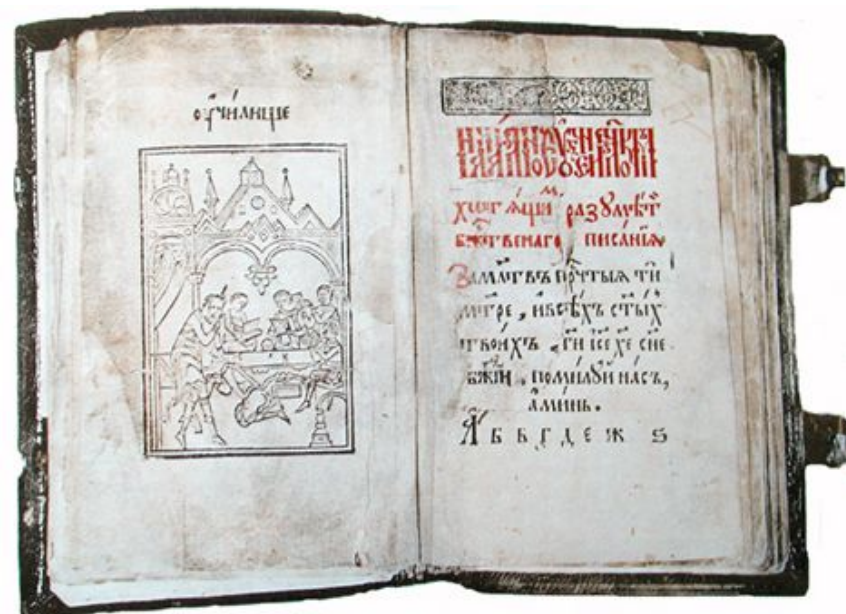 оучи́лище
хотѧ́щиⷨ разꙋмѣ́ти
бж҃е́ственаго писа́нїѧ.
За мл҃твъ прⷭ҇чтыѧ ти
мт҃ре, и҆ всѣ́хъ ст҃ы́хъ
твои́хъ, гⷭ҇и і҆с҃е хе҃ сн҃е
бж҃їи, поми́лꙋй на́съ,
а҆ми́нь.
А б в г д е ж ѕ